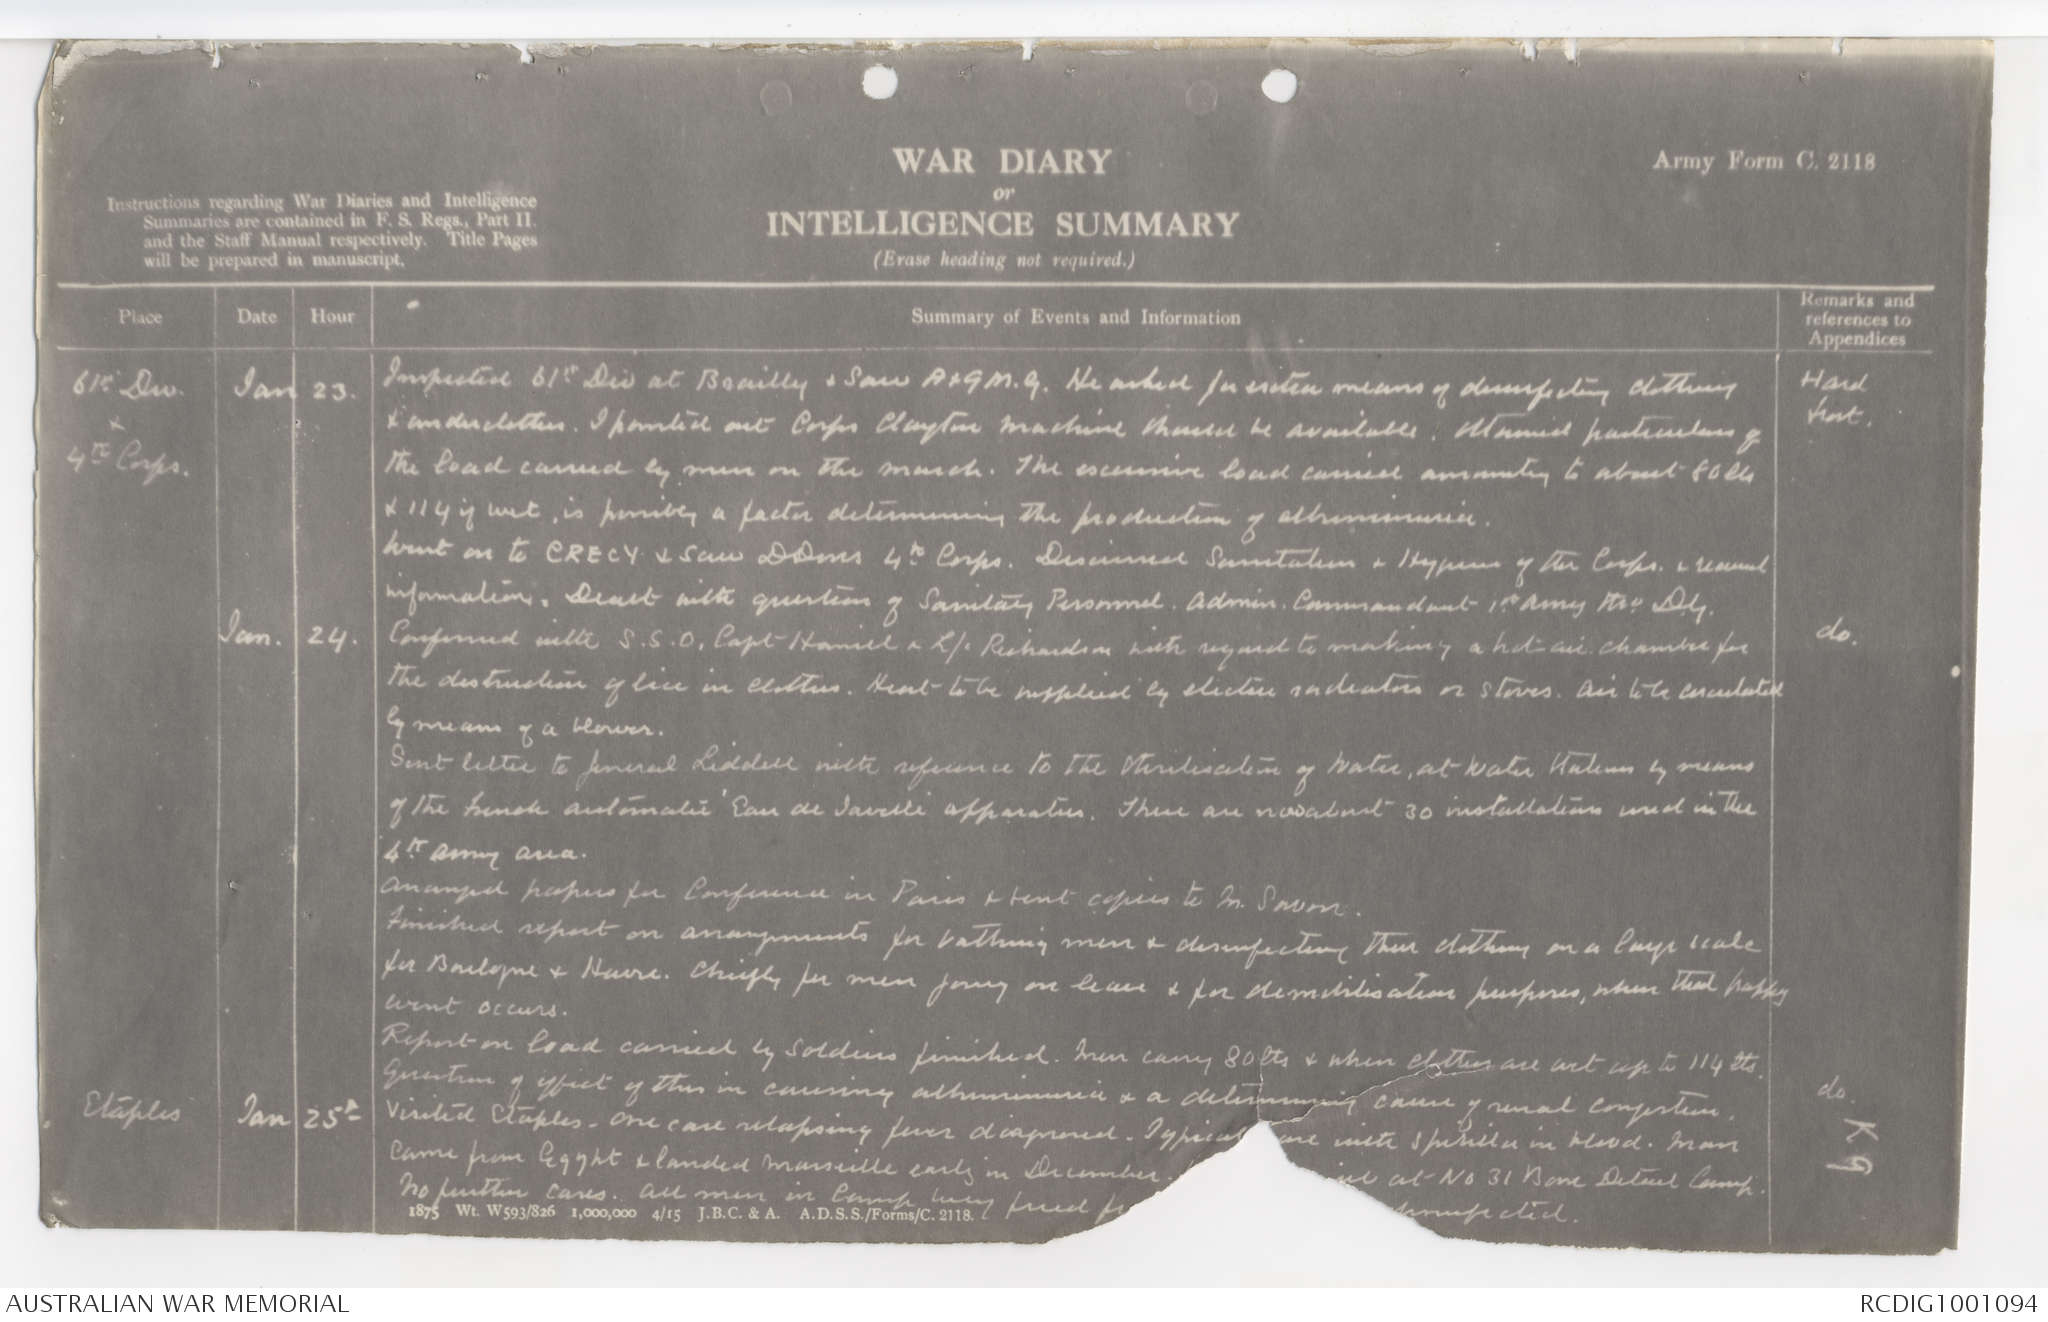 WAR DIARY
or
INTELLIGENCE SUMMARY
(Erase heading not required.)
Army Form C. 2118
Instructions regarding War Diaries and Intelligence
Summaries are contained in F. S. Regs., Part II.
and the Staff Manual respectively. Title Pages
will be prepared in manuscript.
Place
Date
Hour
Summary of Events and Information
Remarks and
references to
Appendices
61st Div.
+
4th Corps.
Jan 23.
Inspected 61st Div at Brailly & saw A&QM.G. He asked for extra means of disinfecting clothing
& underclothes. I pointed out Corps Clayton machine should be available. Obtained particulars of
the load carried by men on the march. The excessive load carried amounting to about 80 lbs
& 114 if wet, is possibly a factor determining the production of albuminuria.
Went on to CRECY & saw DDMS 4th Corps. Discussed Sanitation & Hygiene of the Corps. &
information. Dealt with question of Sanitary Personnel. Admin. Commandant 1st Army Hd Qrs.
Hard
frost.
Jan. 24.
Conferred with S.S.O, Capt & L/c Richardson with regard to making a hot-air chamber for
the destruction of lice in clothes. Heat to be supplied by electric radiators or stoves. Air to be circulated
by means of a blower.
Sent letter to General Liddell with reference to the sterilisation of water, at water stations by means
of the French automatic 'Eau de Javelle' apparatus. There are now about 30 installations used in the
4th Army area.
Arranged papers for Conference in Paris & sent copies to M.
Finished report on arrangements for bathing men & disinfecting their clothing on a large scale
for Boulogne & Havre. Chiefly for men going on leave & for demobilisation purposes, when that happy
event occurs.
Report on load carried by soldiers finished. Men carry 80 lbs & when clothes are wet up to 114 lbs.
Question of effect of this in causing albuminuria & a determining cause of renal congestion.
do.
Etaples
Jan 25th
Visited Etaples - One case relapsing fever diagnosed. Typical case with spirilla in blood. Man
came from Egypt & landed Marseille early in December. at No 31 Base Detail Camp.
No further cases. All men in Camp being freed disinfected.
do.
1875 Wt. W593/826 1,000,000 4/15 J.B.C. & A. A.D.S.S./Forms/C. 2118.
AUSTRALIAN WAR MEMORIAL
RCDIG1001094